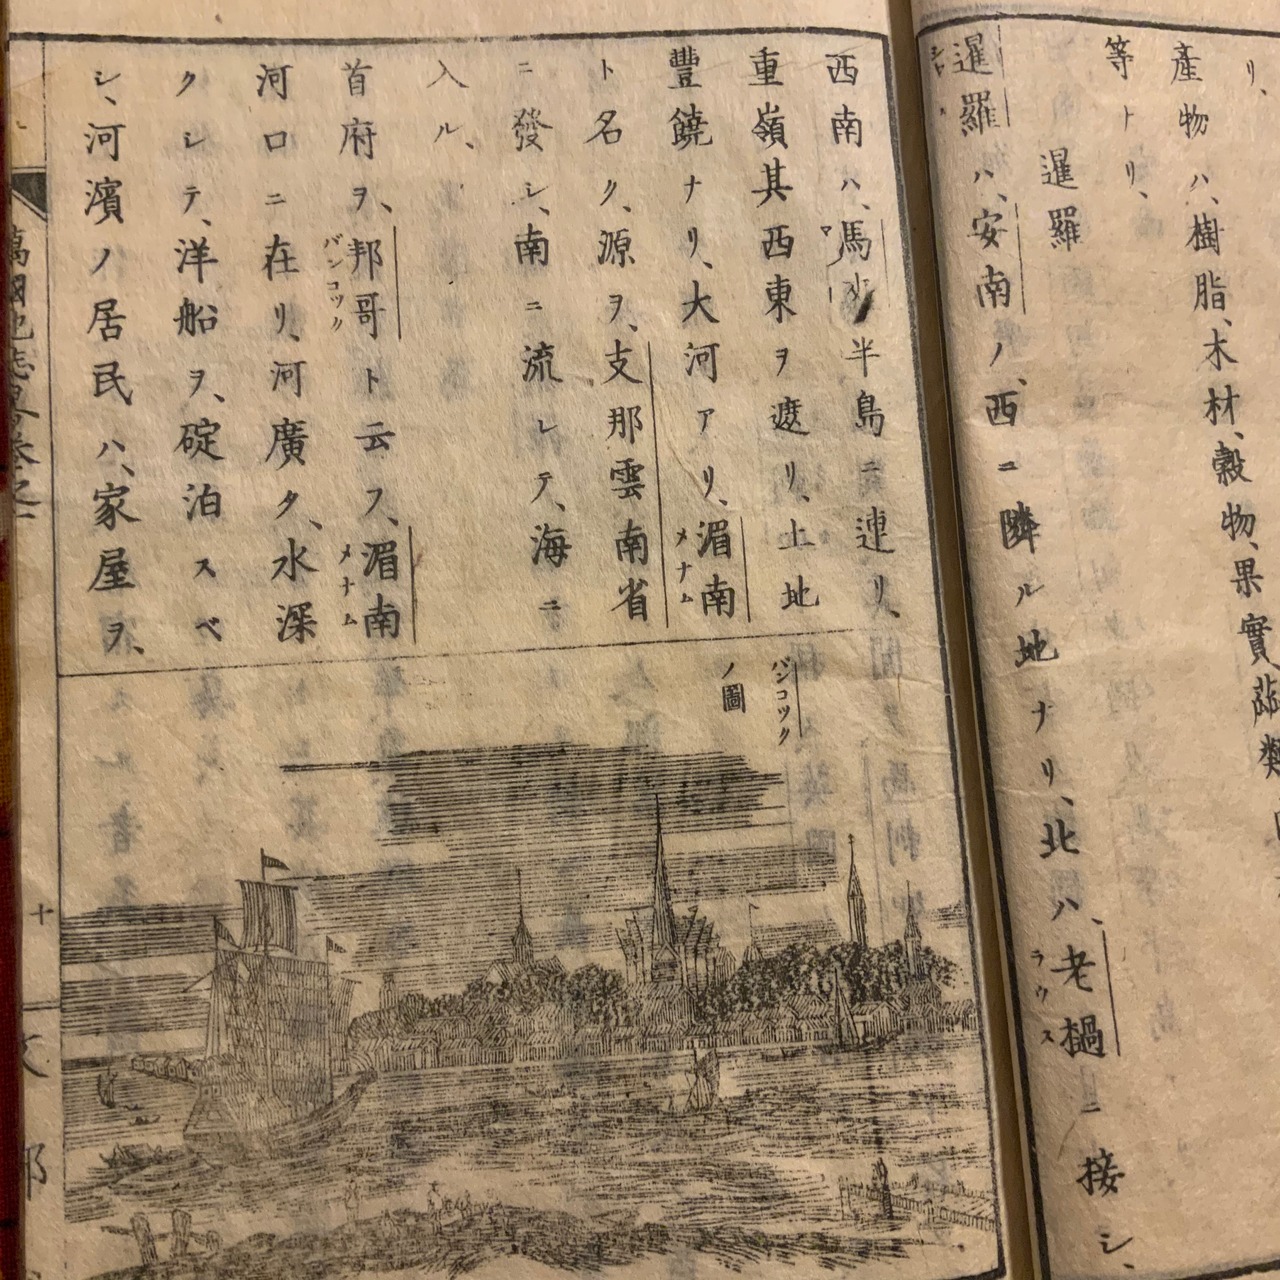 リ、
産物ハ、樹脂、木材、穀物、果實
等トリ、
暹羅
暹羅ハ、安南ノ、西ニ隣ル地ナリ、北ハ、老檛ニ接シ、
ラウス
西南ハ、馬半島ニ連リ、
重嶺其西東ヲ遮リ、土地
豐饒ナリ、大河アリ、湄南
メナム
ト名ク、源ヲ、支那雲南省
ニ發シ、南ニ流レテ、海ニ
入ル、
首府ヲ、邦哥ト云フ、湄南
バンコツク
メナム
河口ニ在リ、河廣タ、水深
クレテ、洋船ヲ、碇泊スベ
シ、河濱ノ居民ハ、家屋ヲ、
バンコツク
ノ圖
萬國地志畧卷之
十
文
部